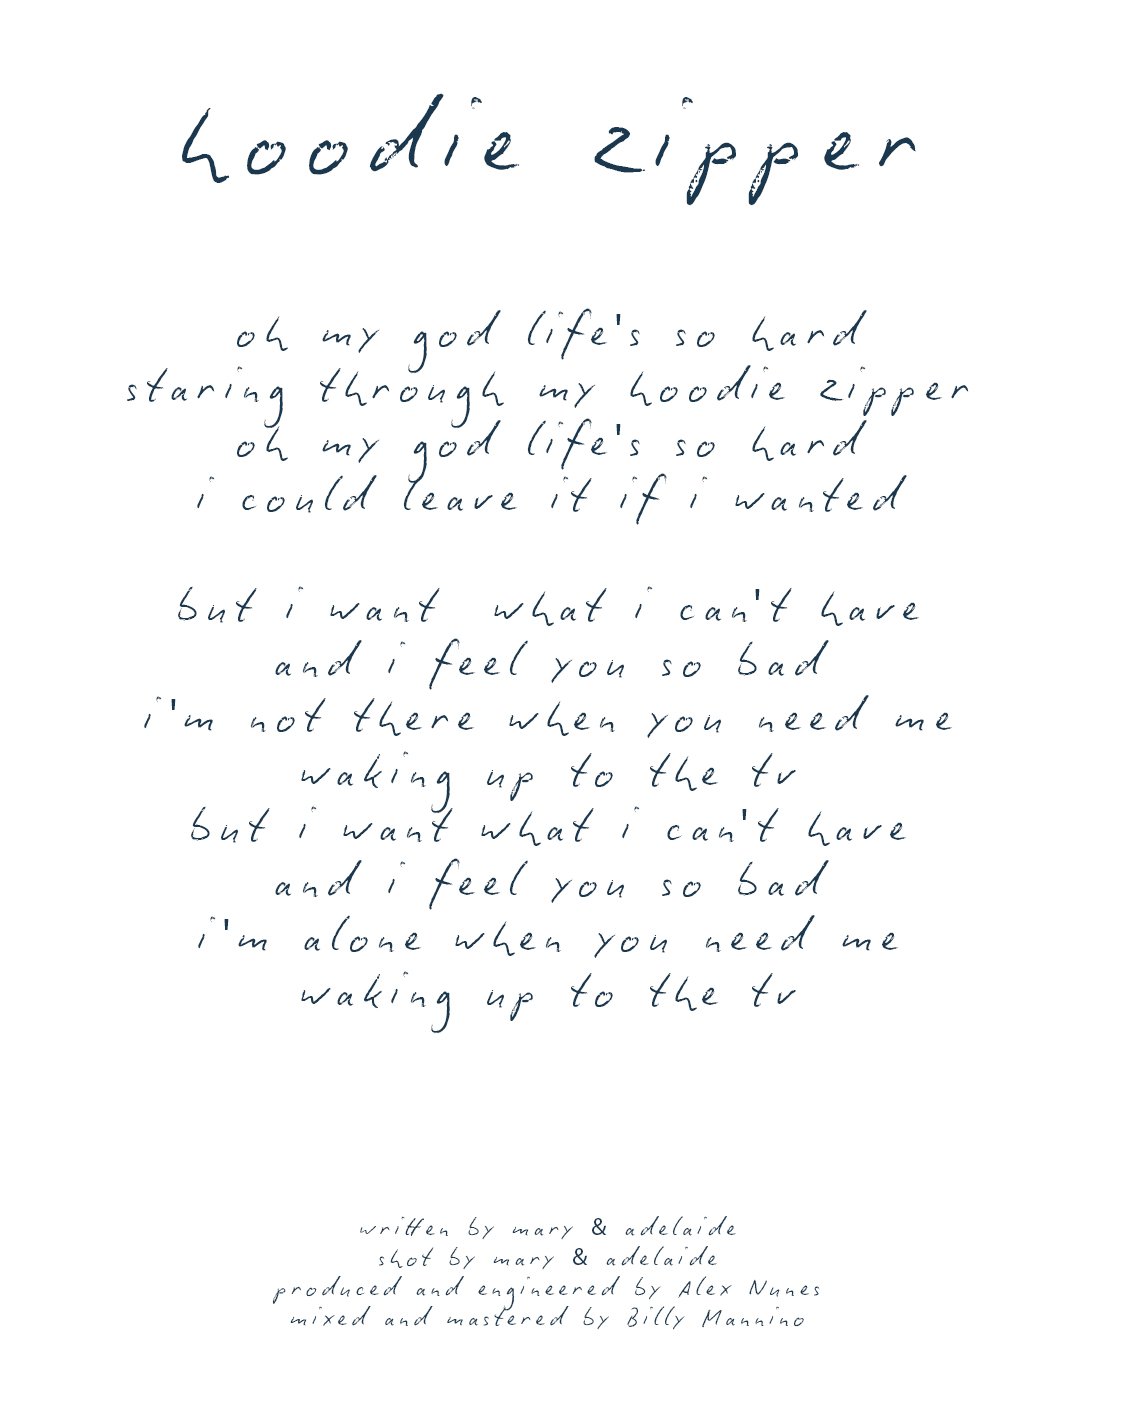 hoodie zipper
oh my god life's so hard
staring through my hoodie zipper
oh my god life's so hard
i could leave it if i wanted
but i want what i can't have
and i feel you so bad
i'm not there when you need me
waking up to the tv
but i want what i can't have
and i feel you so bad
i'm alone when you need me
waking up to the tv
written by mary & adelaide
shot by mary & adelaide
produced and engineered by Alex Nunes
mixed and mastered by Billy Mannino